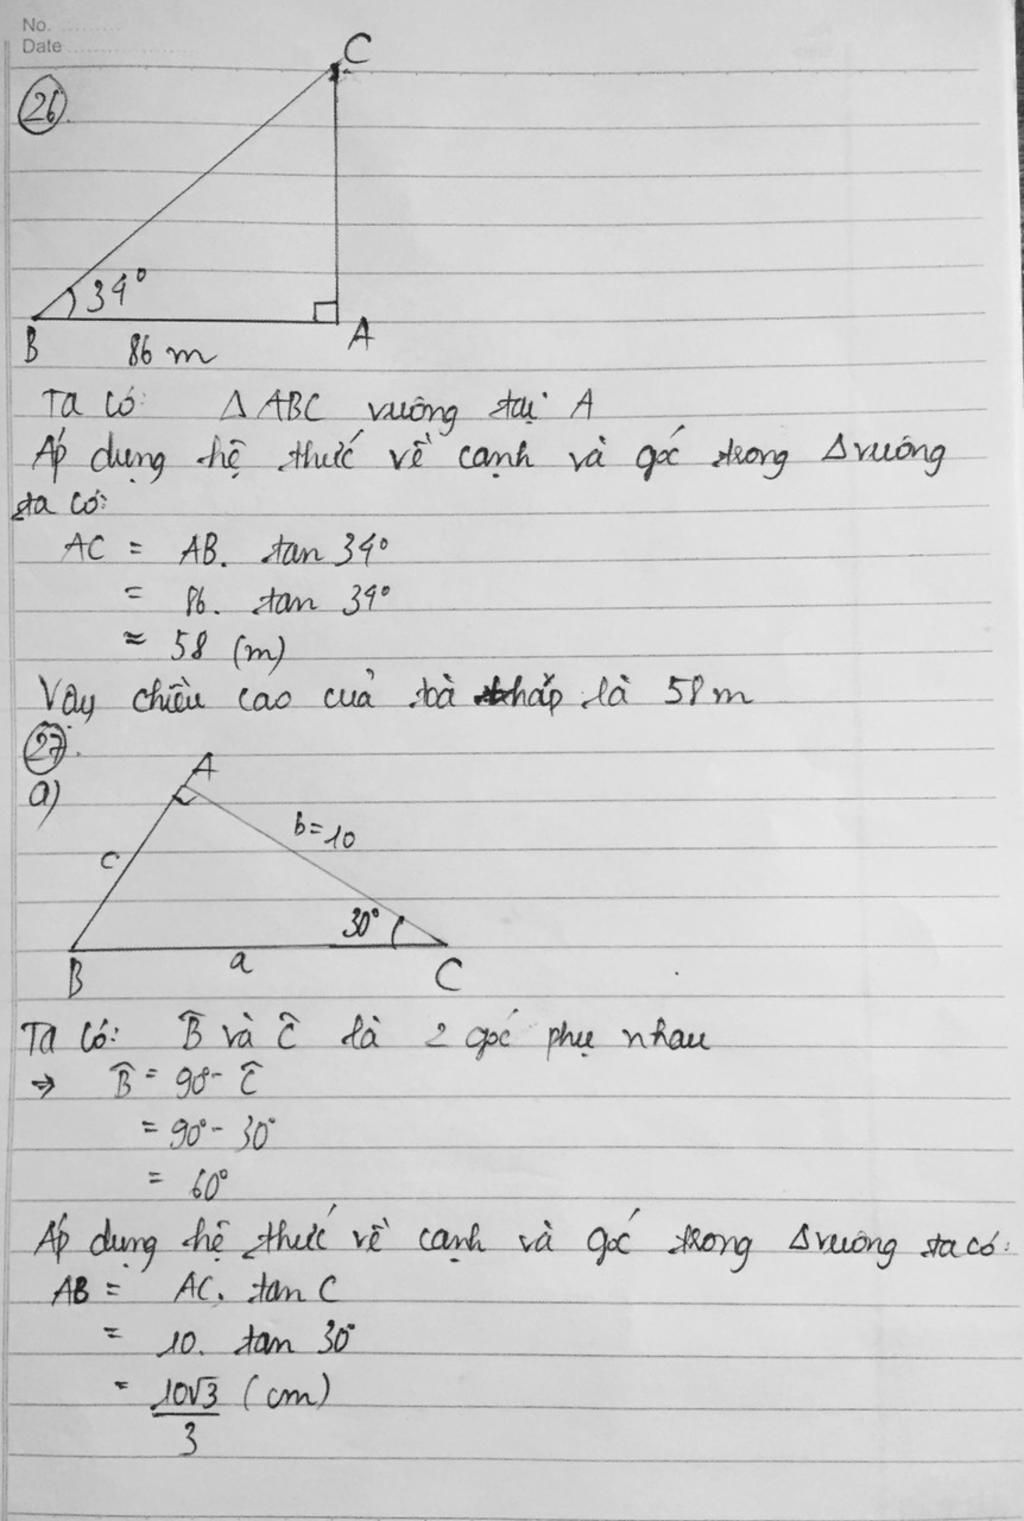 No. ............
Date ........................
26.
C
34°
B
86 m
A
Ta có: Δ ABC vuông tại A
Áp dụng hệ thức về cạnh và góc trong Δ vuông
ta có:
AC = AB. tan 34°
= 86. tan 34°
≈ 58 (m)
Vậy chiều cao của toà tháp là 58 m
27.
a)
A
b = 10
c
30°
B
a
C
Ta có: B̂ và Ĉ là 2 góc phụ nhau
⇒ B̂ = 90° - Ĉ
= 90° - 30°
= 60°
Áp dụng hệ thức về cạnh và góc trong Δ vuông ta có:
AB = AC. tan C
= 10. tan 30°
= 10√3/3 (cm)